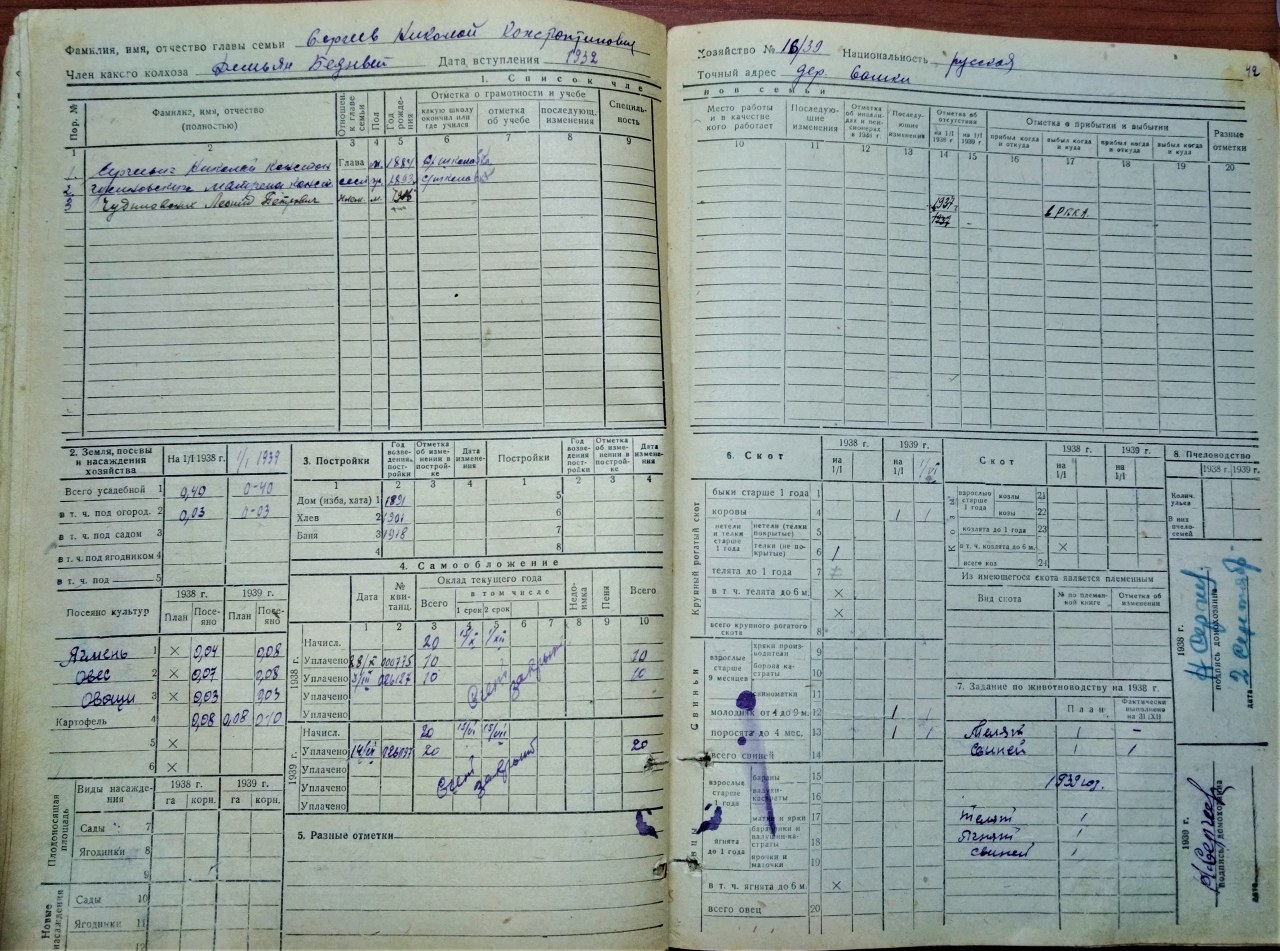 Фамилия, имя, отчество главы семьи Сергеев Николай Константинович
Член какого колхоза Демьян Бедный Дата вступления 1932
1. Список чле
Пор. №
Фамилия, имя, отчество (полностью)
Отношен. к главе семьи
Пол
Год рождения
Отметка о грамотности и учебе
какую школу окончил или где учился
отметка об учебе
последующ. изменения
Специальность
1 2 3 4 5 6 7 8 9
1. Николай Глава м. 1884
2. Матрена ж. 1893
3 Леонид Петрович м.
Хозяйство № 16/39 Национальность русская
42
Точный адрес дер.
нов семьи
Место работы и в качестве кого работает
Последующие изменения
Отметка об инвалидах и пенсионерах в 1938 г.
Последующие изменения
Отметка об отсутствии
на 1/I 1938 г.
на 1/I 1939 г.
Отметка о прибытии и выбытии
прибыл когда и откуда
выбыл когда и куда
прибыл когда и откуда
выбыл когда и куда
Разные отметки
10 11 12 13 14 15 16 17 18 19 20
1937
1937 -
в РККА
2. Земля, посевы и насаждения хозяйства
На 1/I 1938 г. 1/I 1939
Всего усадебной 1 0,40 0-40
в т. ч. под огород. 2 0,03 0-03
в т. ч. под садом 3
в т. ч. под ягодником 4
в т. ч. под 5
Посеяно культур
1938 г. 1939 г.
План Посеяно План Посеяно
Ячмень 1 × 0,04 0,08
Овес 2 × 0,07 0,08
Овощи 3 × 0,03 0,03
Картофель 4 0,08 0,08 0,10
5 ×
6 ×
Плодоносящая площадь
Виды насаждения
1938 г. 1939 г.
га корн. га корн.
Сады 7
Ягодники 8
9
Новые насаждения
Сады 10
Ягодники 11
12
3. Постройки
Год возведения постройки
Отметка об изменении в постройке
Дата изменения
Постройки
Год возведения постройки
Отметка об изменении в постройке
Дата изменения
1 2 3 4 1 2 3 4
Дом (изба, хата) 1 1891 5
Хлев 2 1901 6
Баня 3 1918 7
4 8
4. Самообложение
Дата
№ квитанц.
Оклад текущего года
Всего
в том числе
1 срок 2 срок
Недоимка
Пеня
Всего
1 2 3 4 5 6 7 8 9 10
1938 г.
Начисл. 20
Уплачено 000775 10 10
Уплачено 026127 10 10
Уплачено
Уплачено
Счет закрыт
1939 г.
Начисл. 20
Уплачено 20 20
Уплачено
Уплачено
Уплачено
Счет закрыт
5. Разные отметки
6. Скот
1938 г. 1939 г.
на 1/I на 1/I
Крупный рогатый скот
быки старше 1 года 1
коровы 4 1 1
нетели и телки старше 1 года
нетели (телки покрытые) 5
телки (не покрытые) 6 1
телята до 1 года 7
в т. ч. телята до 6 м. ×
×
всего крупного рогатого скота 8
Свиньи
взрослые старше 9 месяцев
хряки производители 9
борова кастраты 10
свиноматки 11
молодняк от 4 до 9 м. 12 1 1
поросята до 4 мес. 13 1 1
всего свиней 14
взрослые старше 1 года
бараны 15
16
матки и ярки 17
ягнята до 1 года
18
ярочки и маточки 19
в т. ч. ягнята до 6 м. ×
всего овец 20
Скот
1938 г. 1939 г.
на 1/I на 1/I
Козы
взрослые старше 1 года
козлы 21
козы 22
козлята до 1 года 23
в т. ч. козлята до 6 м. ×
всего коз 24
Из имеющегося скота является племенным
Вид скота
№ по племенной книге
Отметка об изменении
7. Задание по животноводству на 1938 г.
План
Фактически выполнена на 31/XII
Телят 1 –
Свиней 1 1
1939 год.
Телят 1
Ягнят 1
Свиней 1
8. Пчеловодство
1938 г. 1939 г.
Колич. улье
В них пчелосемей
1938 г.
Н Сергеев.
подпись домохозяина
дата 2 Сентябр.
1939 г.
Н.Сергеев
подпись домохозяина
дата